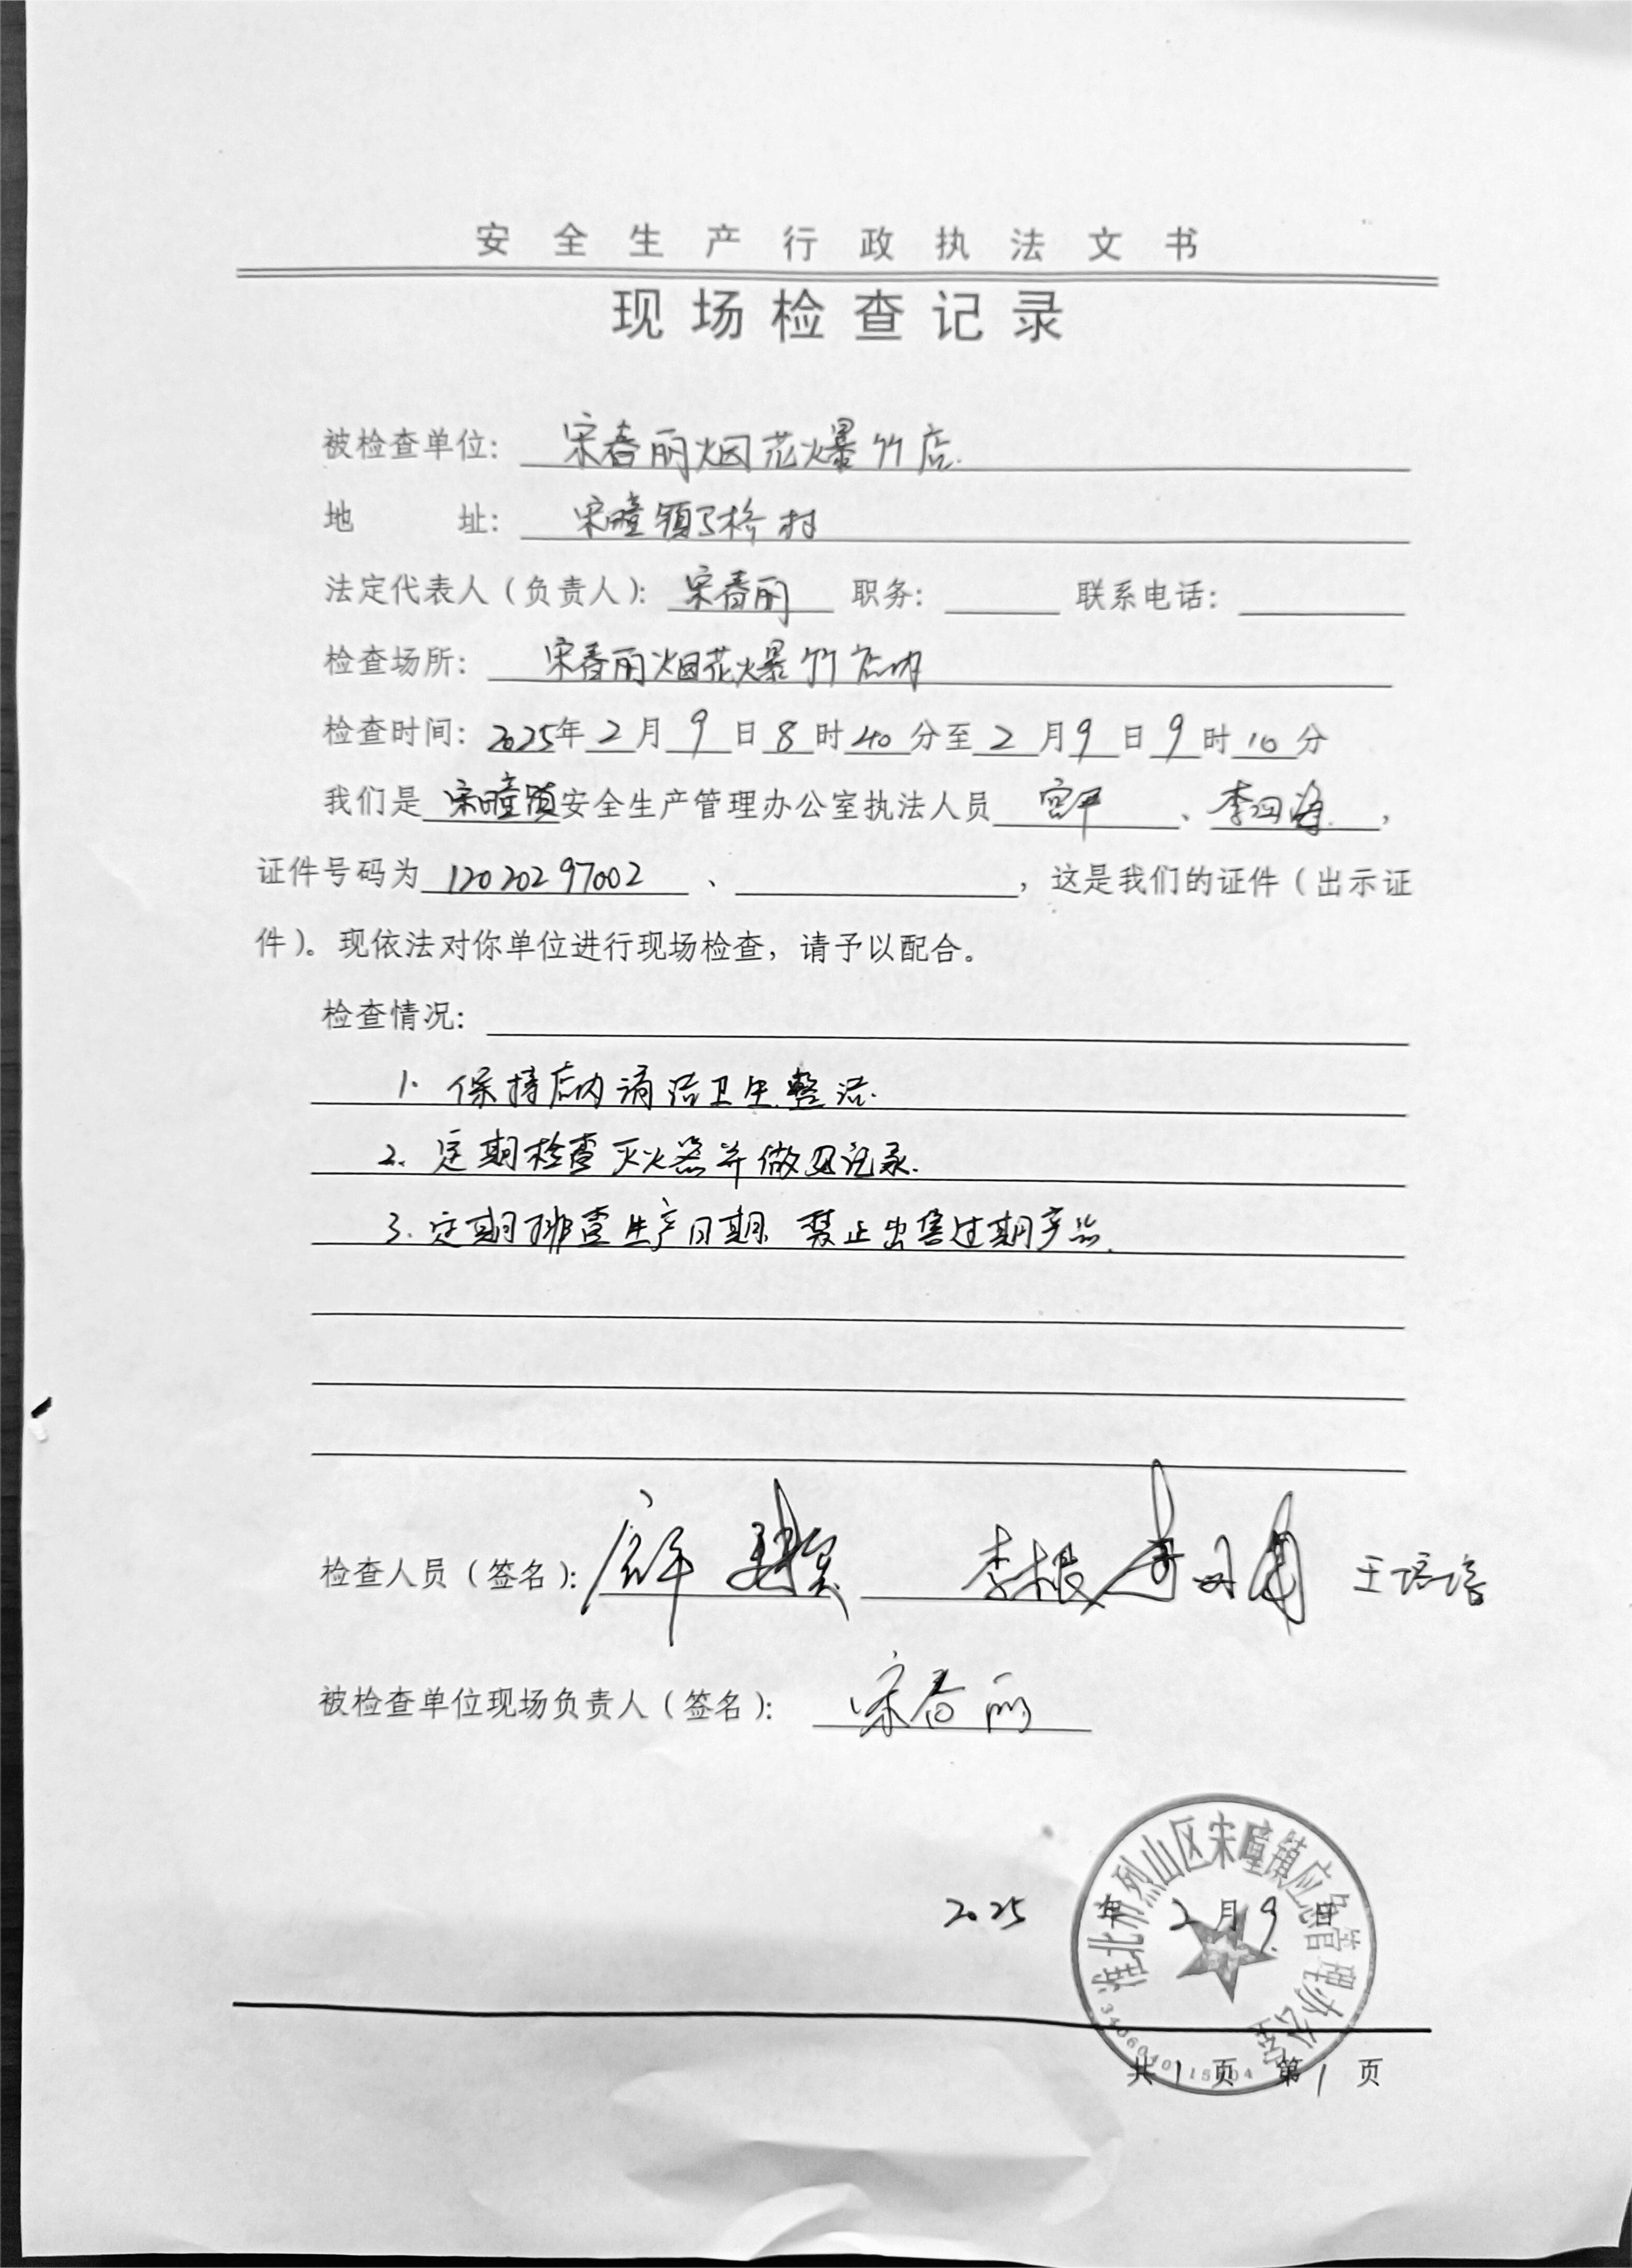 安全生产行政执法文书
现场检查记录
被检查单位：宋春丽烟花爆竹店.
地址：宋疃镇丁桥村
法定代表人（负责人）：宋春丽 职务： 联系电话：
检查场所：宋春丽烟花爆竹店内
检查时间：2025年2月9日8时40分至2月9日9时10分
我们是宋疃镇安全生产管理办公室执法人员 、李
证件号码为12020297002 、 ，这是我们的证件（出示证
件）。现依法对你单位进行现场检查，请予以配合。
检查情况：
1. 保持店内清洁卫生整洁.
2. 定期检查灭火器并做好记录.
3. 定期排查生产日期 禁止出售过期产品.
检查人员（签名）： 李 王培培
被检查单位现场负责人（签名）：宋春丽
2025年2月9日
淮北市烈山区宋疃镇应急管理办公室
共1页 第1页